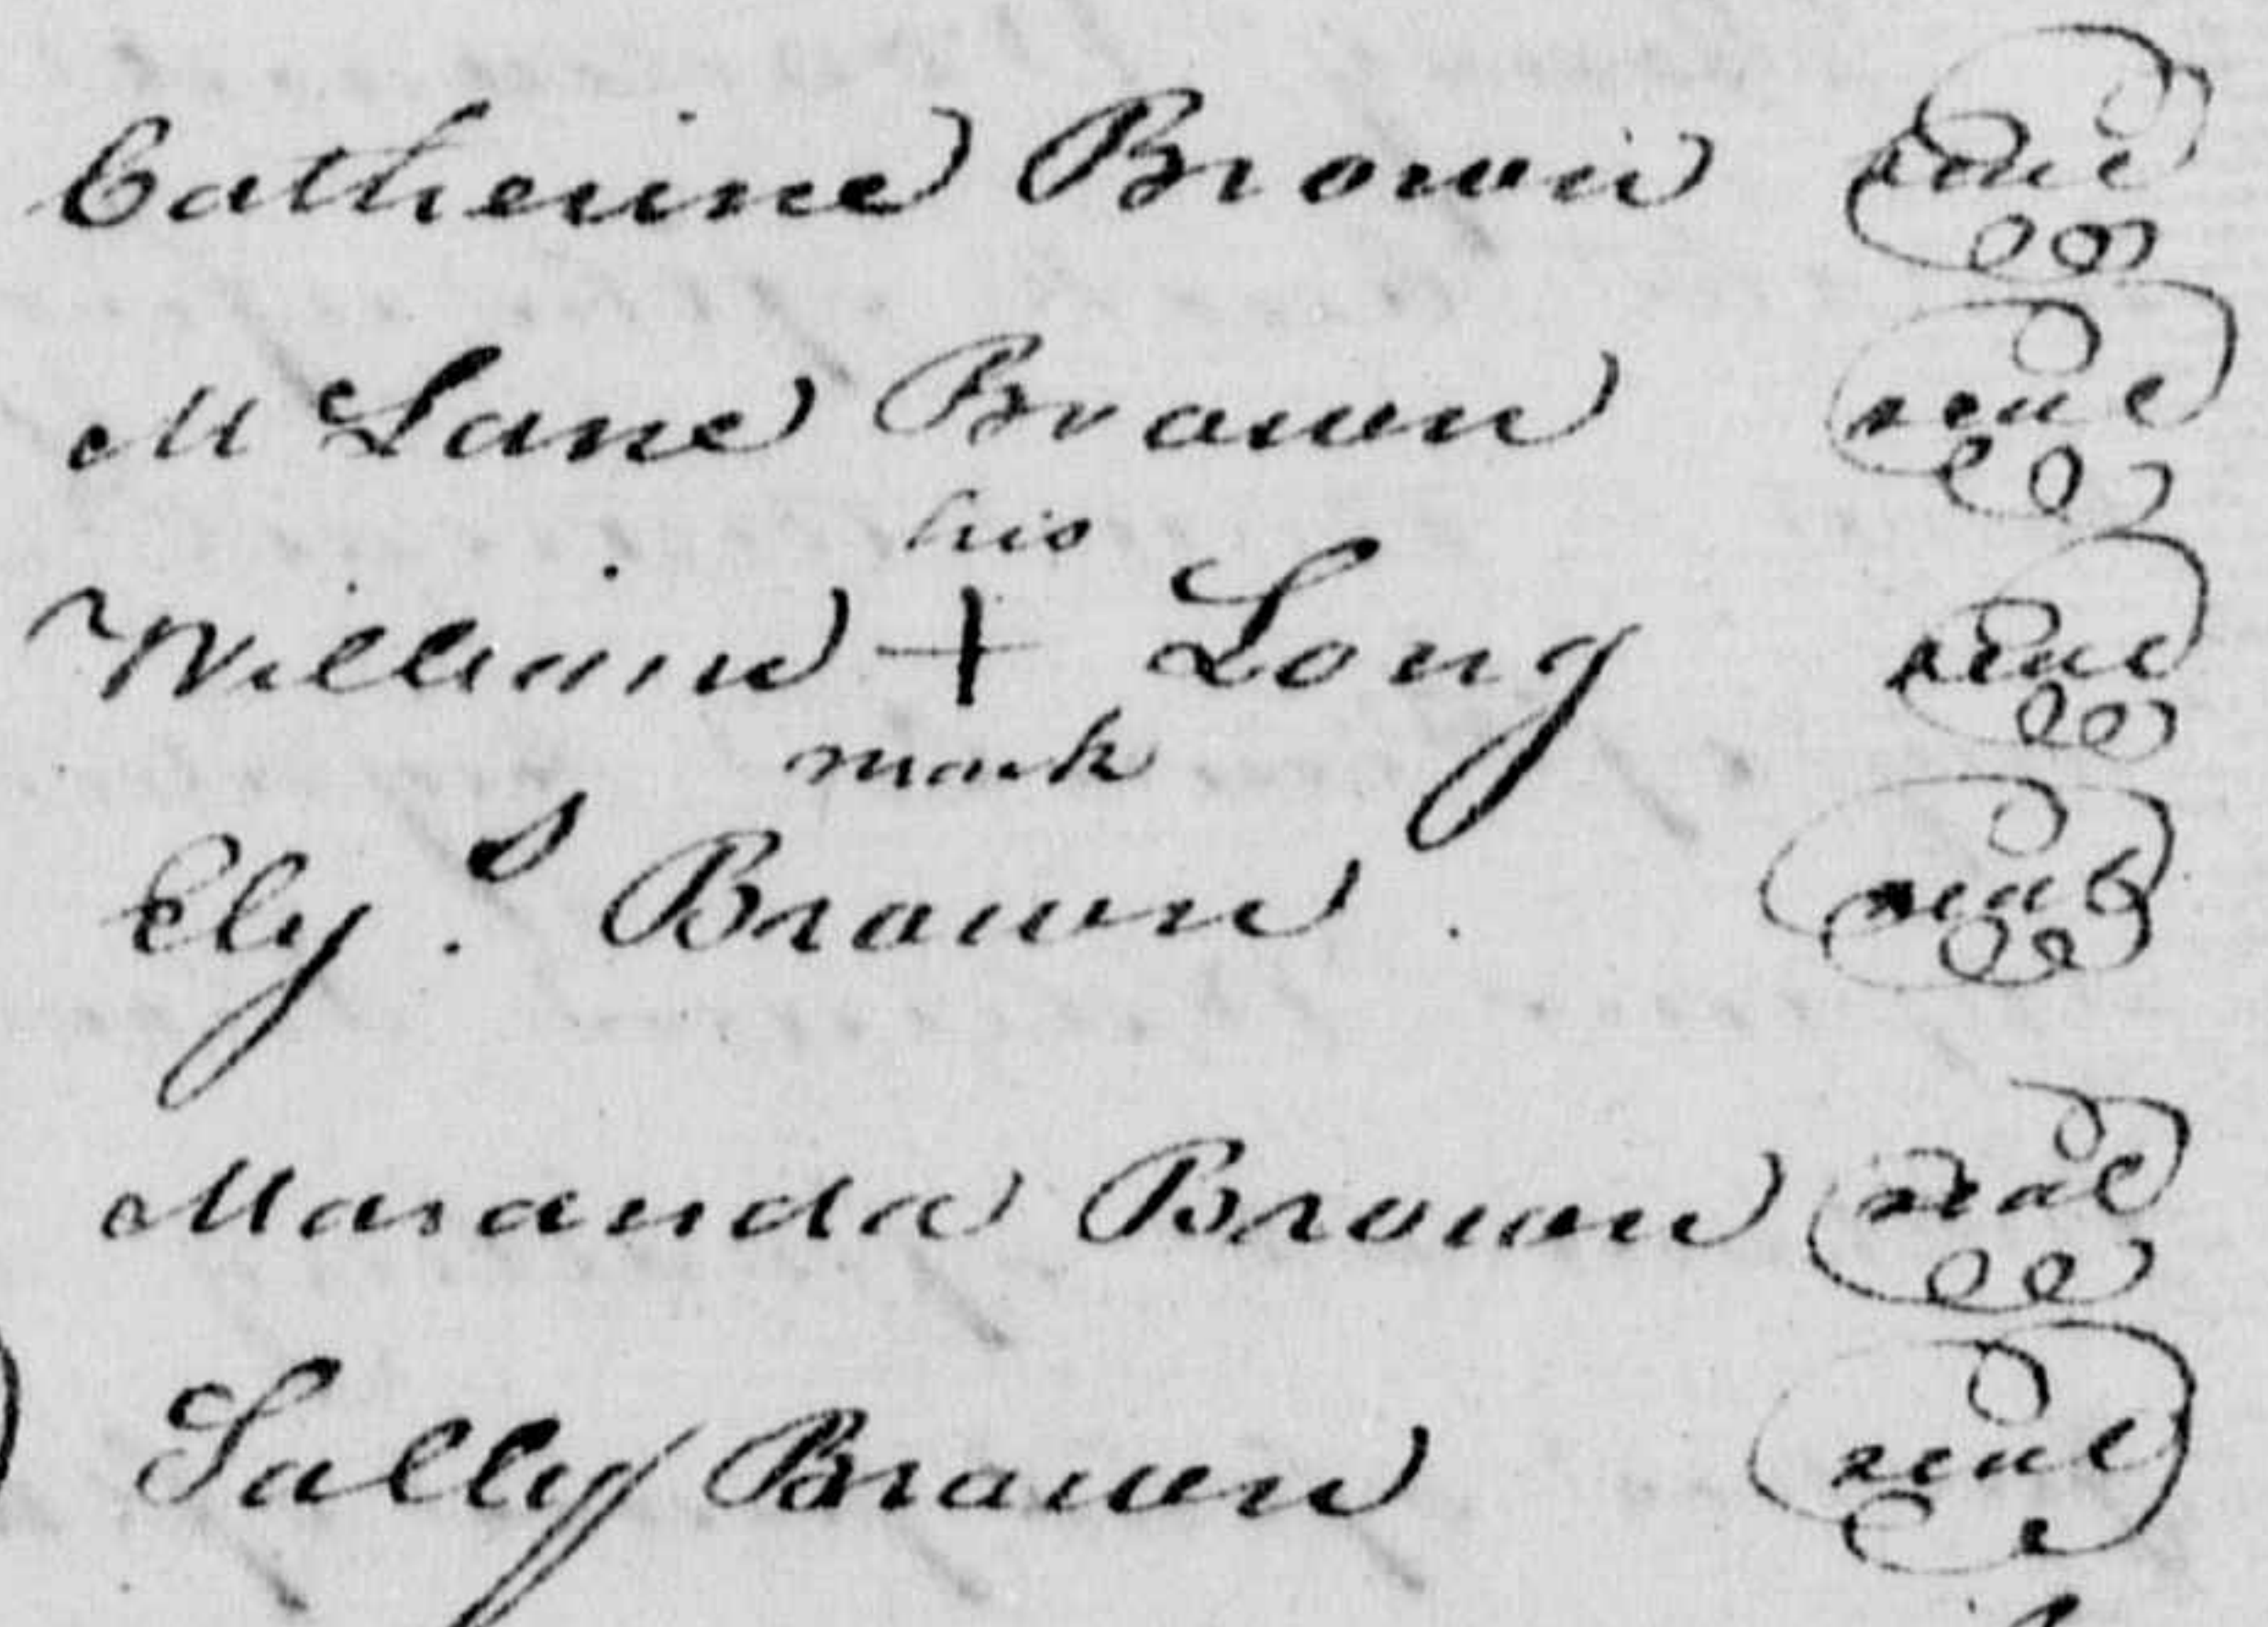 Catherine Brown seal
M Lane Brown seal
his
William + Long seal
mark
Ely. S Brown. seal
Maranda Brown seal
Sally Brown seal